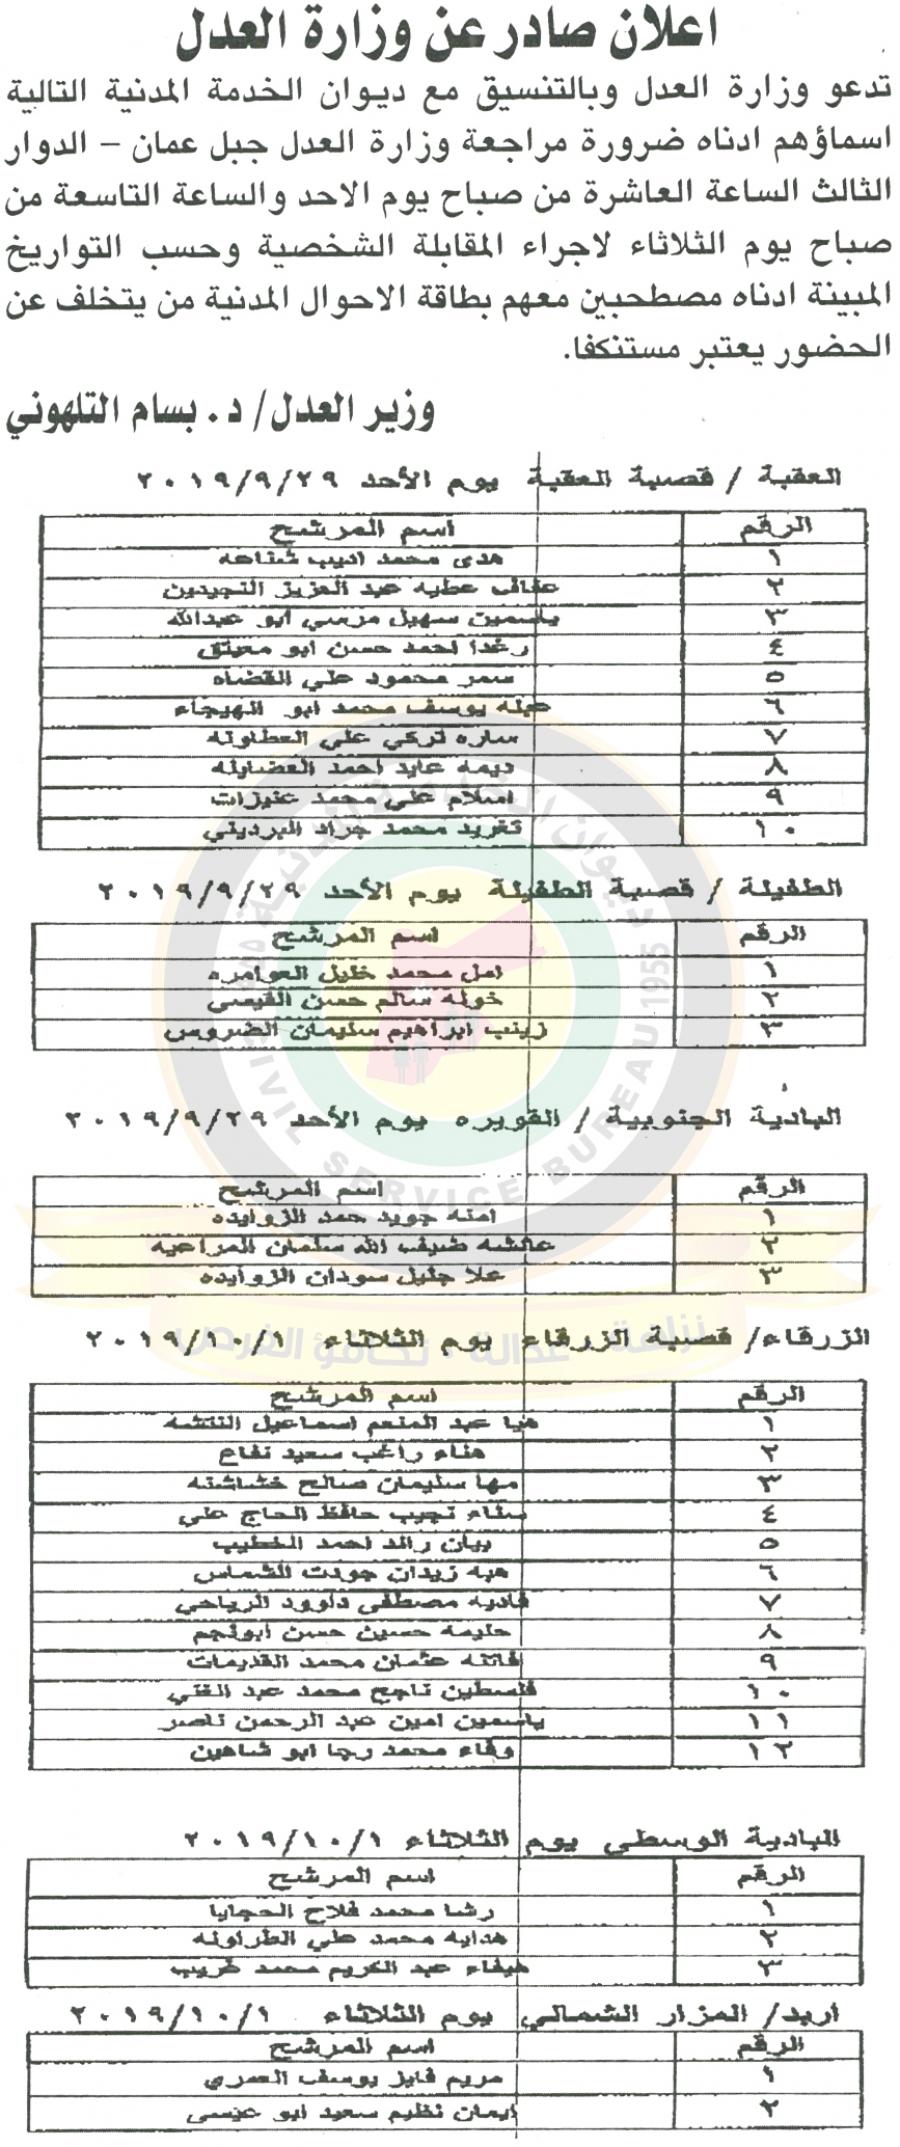 اعلان صادر عن وزارة العدل
تدعو وزارة العدل وبالتنسيق مع ديوان الخدمة المدنية التالية
اسماؤهم ادناه ضرورة مراجعة وزارة العدل جبل عمان – الدوار
الثالث الساعة العاشرة من صباح يوم الاحد والساعة التاسعة من
صباح يوم الثلاثاء لاجراء المقابلة الشخصية وحسب التواريخ
المبينة ادناه مصطحبين معهم بطاقة الاحوال المدنية من يتخلف عن
الحضور يعتبر مستنكفا.
وزير العدل/ د. بسام التلهوني
العقبة / قصبة العقبة يوم الأحد ٢٠١٩/٩/٢٩
الرقم اسم المرشح
١ هدى محمد اديب شناعه
٢ عفاف عطيه عبد العزيز النجيدين
٣ ياسمين سهيل مرسي ابو عبدالله
٤ رغدا احمد حسن ابو معيتق
٥ سمر محمود علي القضاه
٦ عبله يوسف محمد ابو الهيجاء
٧ ساره تركي علي العطاونه
٨ ديمه عايد احمد العضايله
٩ اسلام علي محمد عنيزات
١٠ تغريد محمد جراد البرديني
الطفيلة / قصبة الطفيلة يوم الأحد ٢٠١٩/٩/٢٩
الرقم اسم المرشح
١ امل محمد خليل العوامره
٢ خوله سالم حسن القيسي
٣ زينب ابراهيم سليمان الضروس
البادية الجنوبية / القويره يوم الأحد ٢٠١٩/٩/٢٩
الرقم اسم المرشح
١ امنه جويد حمد الزوايده
٢ عائشه ضيف الله سلمان المراعيه
٣ علا جليل سودان الزوايده
الزرقاء/ قصبة الزرقاء يوم الثلاثاء ٢٠١٩/١٠/١
الرقم اسم المرشح
١ هيا عبد المنعم اسماعيل النتشه
٢ هناء راغب سعيد نفاع
٣ مها سليمان صالح خشاشنه
٤ سناء نجيب حافظ الحاج علي
٥ بيان رائد احمد الخطيب
٦ هبه زيدان جودت الشماس
٧ فاديه مصطفى داوود الرياحي
٨ حليمه حسين حسن ابونجم
٩ فاتنه عثمان محمد القديمات
١٠ فلسطين ناجح محمد عبد الغني
١١ ياسمين امين عبد الرحمن ناصر
١٢ وفاء محمد رجا ابو شاهين
البادية الوسطى يوم الثلاثاء ٢٠١٩/١٠/١
الرقم اسم المرشح
١ رشا محمد فلاح الحجايا
٢ هدايه محمد علي الطراونه
٣ هيفاء عبد الكريم محمد غريب
اربد/ المزار الشمالي يوم الثلاثاء ٢٠١٩/١٠/١
الرقم اسم المرشح
١ مريم فايز يوسف العمري
٢ ايمان نظيم سعيد ابو عيسى
ديوان الخدمة المدنية
CIVIL SERVICE BUREAU 1955
نزاهة - عدالة - تكافؤ الفرص